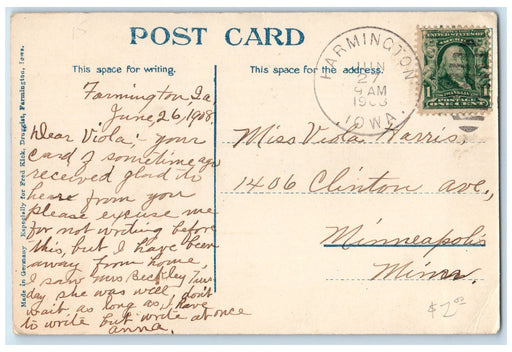 POST CARD
This space for writing.
This space for the address.
Farmington, Ia,
June 26, 1908.
Dear Viola;- your
card of sometime ago
received glad to
hear from you
please excuse me
for not writing before
this, but I have been
away from home,
I saw Mrs Beckley
day she was well don't
wait as long as I have
to write but write at once
anna.
Miss Viola Harris,
1406 Clinton ave.,
Minneapolis
Minn.
FARMINGTON
JUN
27
9 AM
1908
IOWA.
UNITED STATES OF AMERICA
1
POSTAGE
ONE CENT
Made in Germany Especially for Fred Kick, Druggist, Farmington, Iowa.
$2.00